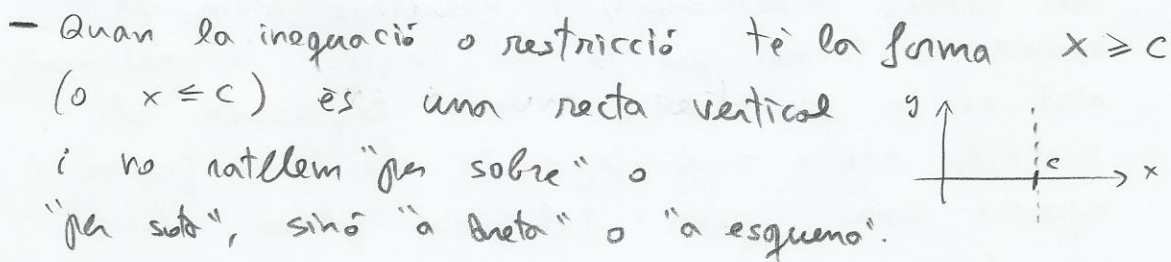 - Quan la inequació o restricció té la forma x ≥ c
(o x ≤ c) és una recta vertical
i no ratllem "per sobre" o
"per sota", sinó "a dreta" o "a esquerra".
y
c
x